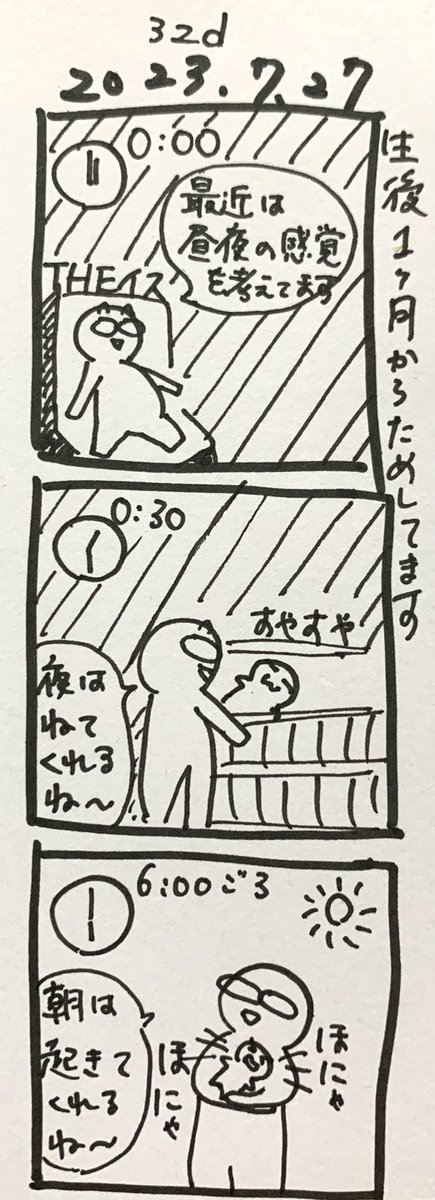 32d
2023.7.27
生後1ヶ月からためしてます
0:00
最近は
昼夜の感覚
を考えてます
THEイス
0:30
すやすや
夜は
ねて
くれる
ね〜
6:00ごろ
朝は
起きて
くれる
ね〜
ほにゃ
ほにゃ